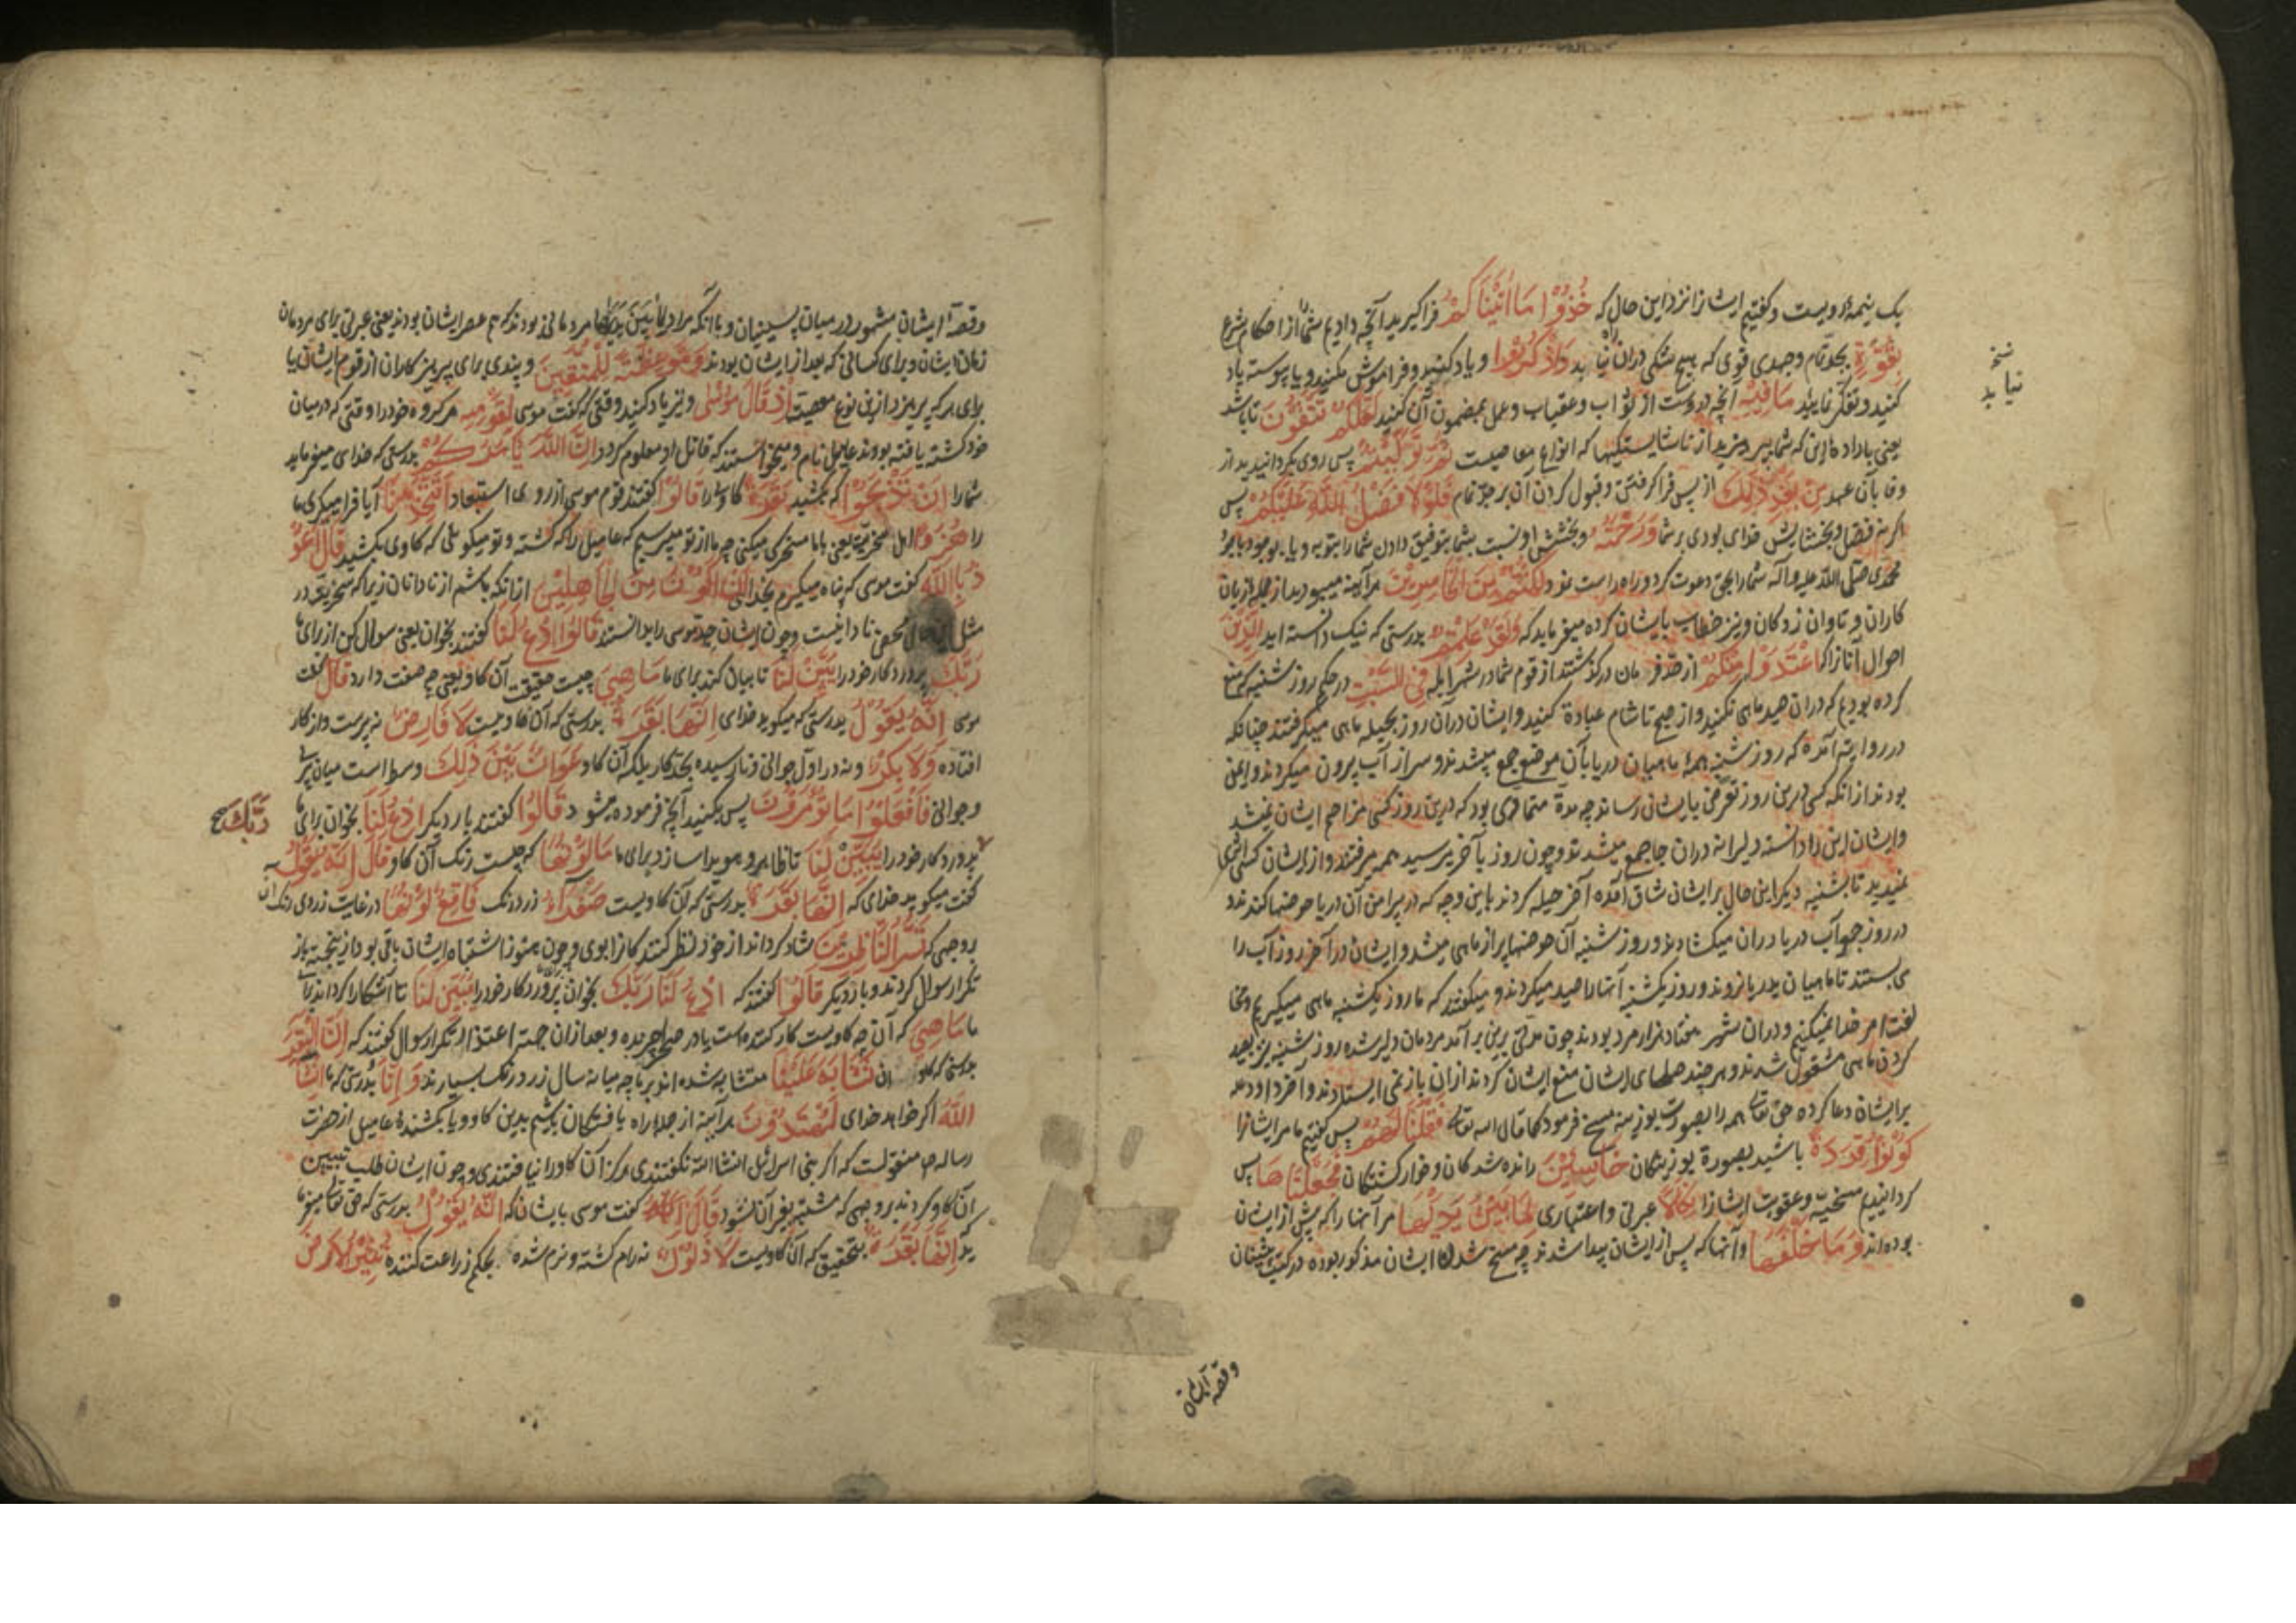 یک نیمه رویست وگفتیم ایشانرا نزد این حال که خُذُوا مَا اٰتَیْنَاکُمْ فراگیرید آنچه دادیم شما را از احکام شرع
بِقُوَّةٍ بجد تمام وجهدی قوی که هیچ شکی دران راه نیابد وَاذْکُرُوا ویاد کنید وفراموش مکنید ویا پیوسته یاد
کنید وتفکر نمایید مَا فِیْهِ آنچه دروست از ثواب وعقاب وعمل بمضمون آن کنید لَعَلَّکُمْ تَتَّقُونَ تا باشد
یعنی باراده این که شما بپرهیزید از ناشایستگیها که انواع معاصیست ثُمَّ تَوَلَّیْتُمْ پس روی بگردانیدید از
وفا بآن عهد مِنْ بَعْدِ ذٰلِکَ از پس فراگرفتن وقبول کردن آن بر جد تمام فَلَوْلَا فَضْلُ اللهِ عَلَیْکُمْ پس
اگر نه فضل وبخشایش خدای بودی بر شما وَرَحْمَتُهُ وبخشش او نسبت بشما بتوفیق دادن شما را بتوبه ویا بوجود باجود
محمدی صلی الله علیه وآله شما را بحق دعوت کرد وراه راست نمود لَکُنْتُمْ مِنَ الْخَاسِرِیْنَ هرآینه میبودید از جمله زیان
کاران وتاوان زدگان ونیز خطاب بایشان کرده میفرماید که وَلَقَدْ عَلِمْتُمُ بدرستی که نیک دانسته اید الَّذِیْنَ
احوال آنانرا که اعْتَدَوْا مِنْکُمْ از حد فرمان درگذشتند از قوم شما در شهر ایله فِی السَّبْتِ در حکم روز شنبه که منع
کرده بودیم که دران صید ماهی نکنید واز صبح تا شام عبادة کنید وایشان دران روز بحیله ماهی میگرفتند چنانکه
در روایته آمده که روز شنبه همهٔ ماهیان دریا بآن موضع جمع میشدند وسر از آب بیرون میکردند وایمن
بودند از آنکه کسی درین روز تعرض بایشان رساند چه مدة متمادی بود که درین روز کسی مزاحم ایشان نمیشد
وایشان این را دانسته دلیرانه دران جا جمع میشدند وچون روز بآخر میرسید همه میرفتند واز ایشان کسی اثری
نمیدید تا بشنبه دیگر این حال بر ایشان شاق آمده آخر حیله کردند باین وجه که در پیرامن آن دریا حوضها کندند و
در روز جمعه آب دریا دران میگشادند وروز شنبه آن حوضها پر از ماهی میشد وایشان در آخر روز آب را
می بستند تا ماهیان بدریا نروند وروز یکشنبه آنها را صید میکردند ومیگفتند که ما روز یکشنبه ماهی میگیریم ومخا
لفت امر خدا نمیکنیم ودران شهر هفتاد هزار مرد بودند چون مدتی برین برآمد مردمان دلیر شده روز شنبه نیز بصید
کردن ماهی مشغول شدند وهر چند صلحای ایشان منع ایشان کردند ازان باز نمی ایستادند وآخر داود علیه
بر ایشان دعا کرده حق تعالی همه را بصورت بوزینه مسخ فرمود کما قال الله تعالی فَقُلْنَا لَهُمْ پس گفتیم ما مر ایشانرا
کُوْنُوا قِرَدَةً باشید بصورة بوزینگان خَاسِئِیْنَ رانده شدگان وخوار گشتگان فَجَعَلْنَاهَا پس
گردانیدیم مسخیه وعقوبت ایشانرا نَکَالًا عبرتی واعتباری لِمَا بَیْنَ یَدَیْهَا مر آنها را که پیش از ایشان
بوده اند وَمَا خَلْفَهَا وآنها که پس از ایشان پیدا شدند چه مسخ شدن ایشان مذکور بوده در کتب پیشینیان
نسخ
نیابد
وقصه ایشان
وقصهٔ ایشان مشهور در میان پسینیان ویا آنکه مراد بما بَیْنَ یَدَیْهَا مردمانی بودند که هم عصر ایشان بودند یعنی عبرتی برای مردمان
زمان ایشان وبرای کسانی که بعد از ایشان بودند وَمَوْعِظَةً لِلْمُتَّقِیْنَ وپندی برای پرهیزکاران از قوم ایشان یا
برای هر که پرهیزد ازین نوع معصیت اِذْ قَالَ مُوْسٰی ونیز یاد کنید وقتی که گفت موسی لِقَوْمِهِ مر گروه خود را وقتی که درمیان
خود کشته یافته بودند عامیل نام ومیخواستند که قاتل او معلوم گردد اِنَّ اللهَ یَاْمُرُکُمْ بدرستی که خدای میفرماید
شما را اَنْ تَذْبَحُوْا که بکشید بَقَرَةً گاوی را قَالُوْا گفتند قوم موسی از روی استبعاد اَتَتَّخِذُنَا آیا فرا میگیری ما
را هُزُوًا اهل سخریه یعنی با ما سخرگی میکنی چه ما از تو میپرسیم که عامیل را که کشته وتو میگوئی که گاوی بکشید قَالَ اَعُوْ
ذُ بِاللهِ گفت موسی که پناه میگیرم بخدای اَنْ اَکُوْنَ مِنَ الْجَاهِلِیْنَ از آنکه باشم از نادانان زیرا که سخریه در
مثل این حال محض نادانیست وچون ایشان جد موسی را بدانستند قَالُوا ادْعُ لَنَا گفتند بخوان یعنی سوال کن از برای ما
رَبَّکَ پروردگار خود را یُبَیِّنْ لَنَا تا بیان کند برای ما مَا هِیَ چیست حقیقت آن گاو یعنی چه صفت دارد قَالَ گفت
موسی اِنَّهُ یَقُوْلُ بدرستی که میگوید خدای اِنَّهَا بَقَرَةٌ بدرستی که آن گاویست لَا فَارِضٌ نه پیرست واز کار
افتاده وَلَا بِکْرٌ ونه در اول جوانی ونارسیده بحد کار بلکه آن گاو عَوَانٌ بَیْنَ ذٰلِکَ وسط است میان پیری
وجوانی فَافْعَلُوْا مَا تُؤْمَرُوْنَ پس بکنید آنچه فرموده میشود قَالُوا گفتند بار دیگر ادْعُ لَنَا بخوان برای ما
رَبَّکَ صح
پروردگار خود را یُبَیِّنْ لَنَا تا ظاهر وهویدا سازد برای ما مَا لَوْنُهَا که چیست رنگ آن گاو قَالَ اِنَّهُ یَقُوْلُ
گفت میگوید خدای که اِنَّهَا بَقَرَةٌ بدرستی که آن گاویست صَفْرَآءُ زرد رنگ فَاقِعٌ لَوْنُهَا در غایت زردی رنگ آن
بروجهی که تَسُرُّ النَّاظِرِیْنَ شاد گرداند از خود نظر کنندگانرا بوی وچون هنوز اشتباه ایشان باقی بود ازینجهته باز
تکرار سوال کردند وبار دیگر قَالُوا گفتند که ادْعُ لَنَا رَبَّکَ بخوان برای ما پروردگار خود را یُبَیِّنْ لَنَا تا آشکارا گرداند برای
ما مَا هِیَ که آن چه گاویست کار کننده است یا در صحرا چرنده وبعد ازان جهته اعتذار تکرار سوال گفتند که اِنَّ الْبَقَرَ
بدرستی که گاو ان تَشَابَهَ عَلَیْنَا متشابه شده اند بر ما چه میانه سال زرد رنگ بسیارند وَاِنَّا بدرستی که ما اِنْ شَآءَ
اللهُ اگر خواهد خدای لَمُهْتَدُوْنَ هرآینه از جمله راه یافتگان باشیم بدین گاو ویا بکشندهٔ عامیل از حضرت
رساله ص منقولست که اگر بنی اسرائیل انشاالله نگفتندی هرگز آن گاو را نیافتندی وچون ایشان طلب تبیین
آن گاو کردند بروجهی که مشتبه بغیر آن نشود قَالَ گفت موسی بایشان که اِنَّهُ یَقُوْلُ بدرستی که حق تعالی میفرما
ید که اِنَّهَا بَقَرَةٌ بتحقیق که آن گاویست لَا ذَلُوْلٌ نه رام گشته ونرم شده بحکم زراعت کننده تُثِیْرُ الْاَرْضَ